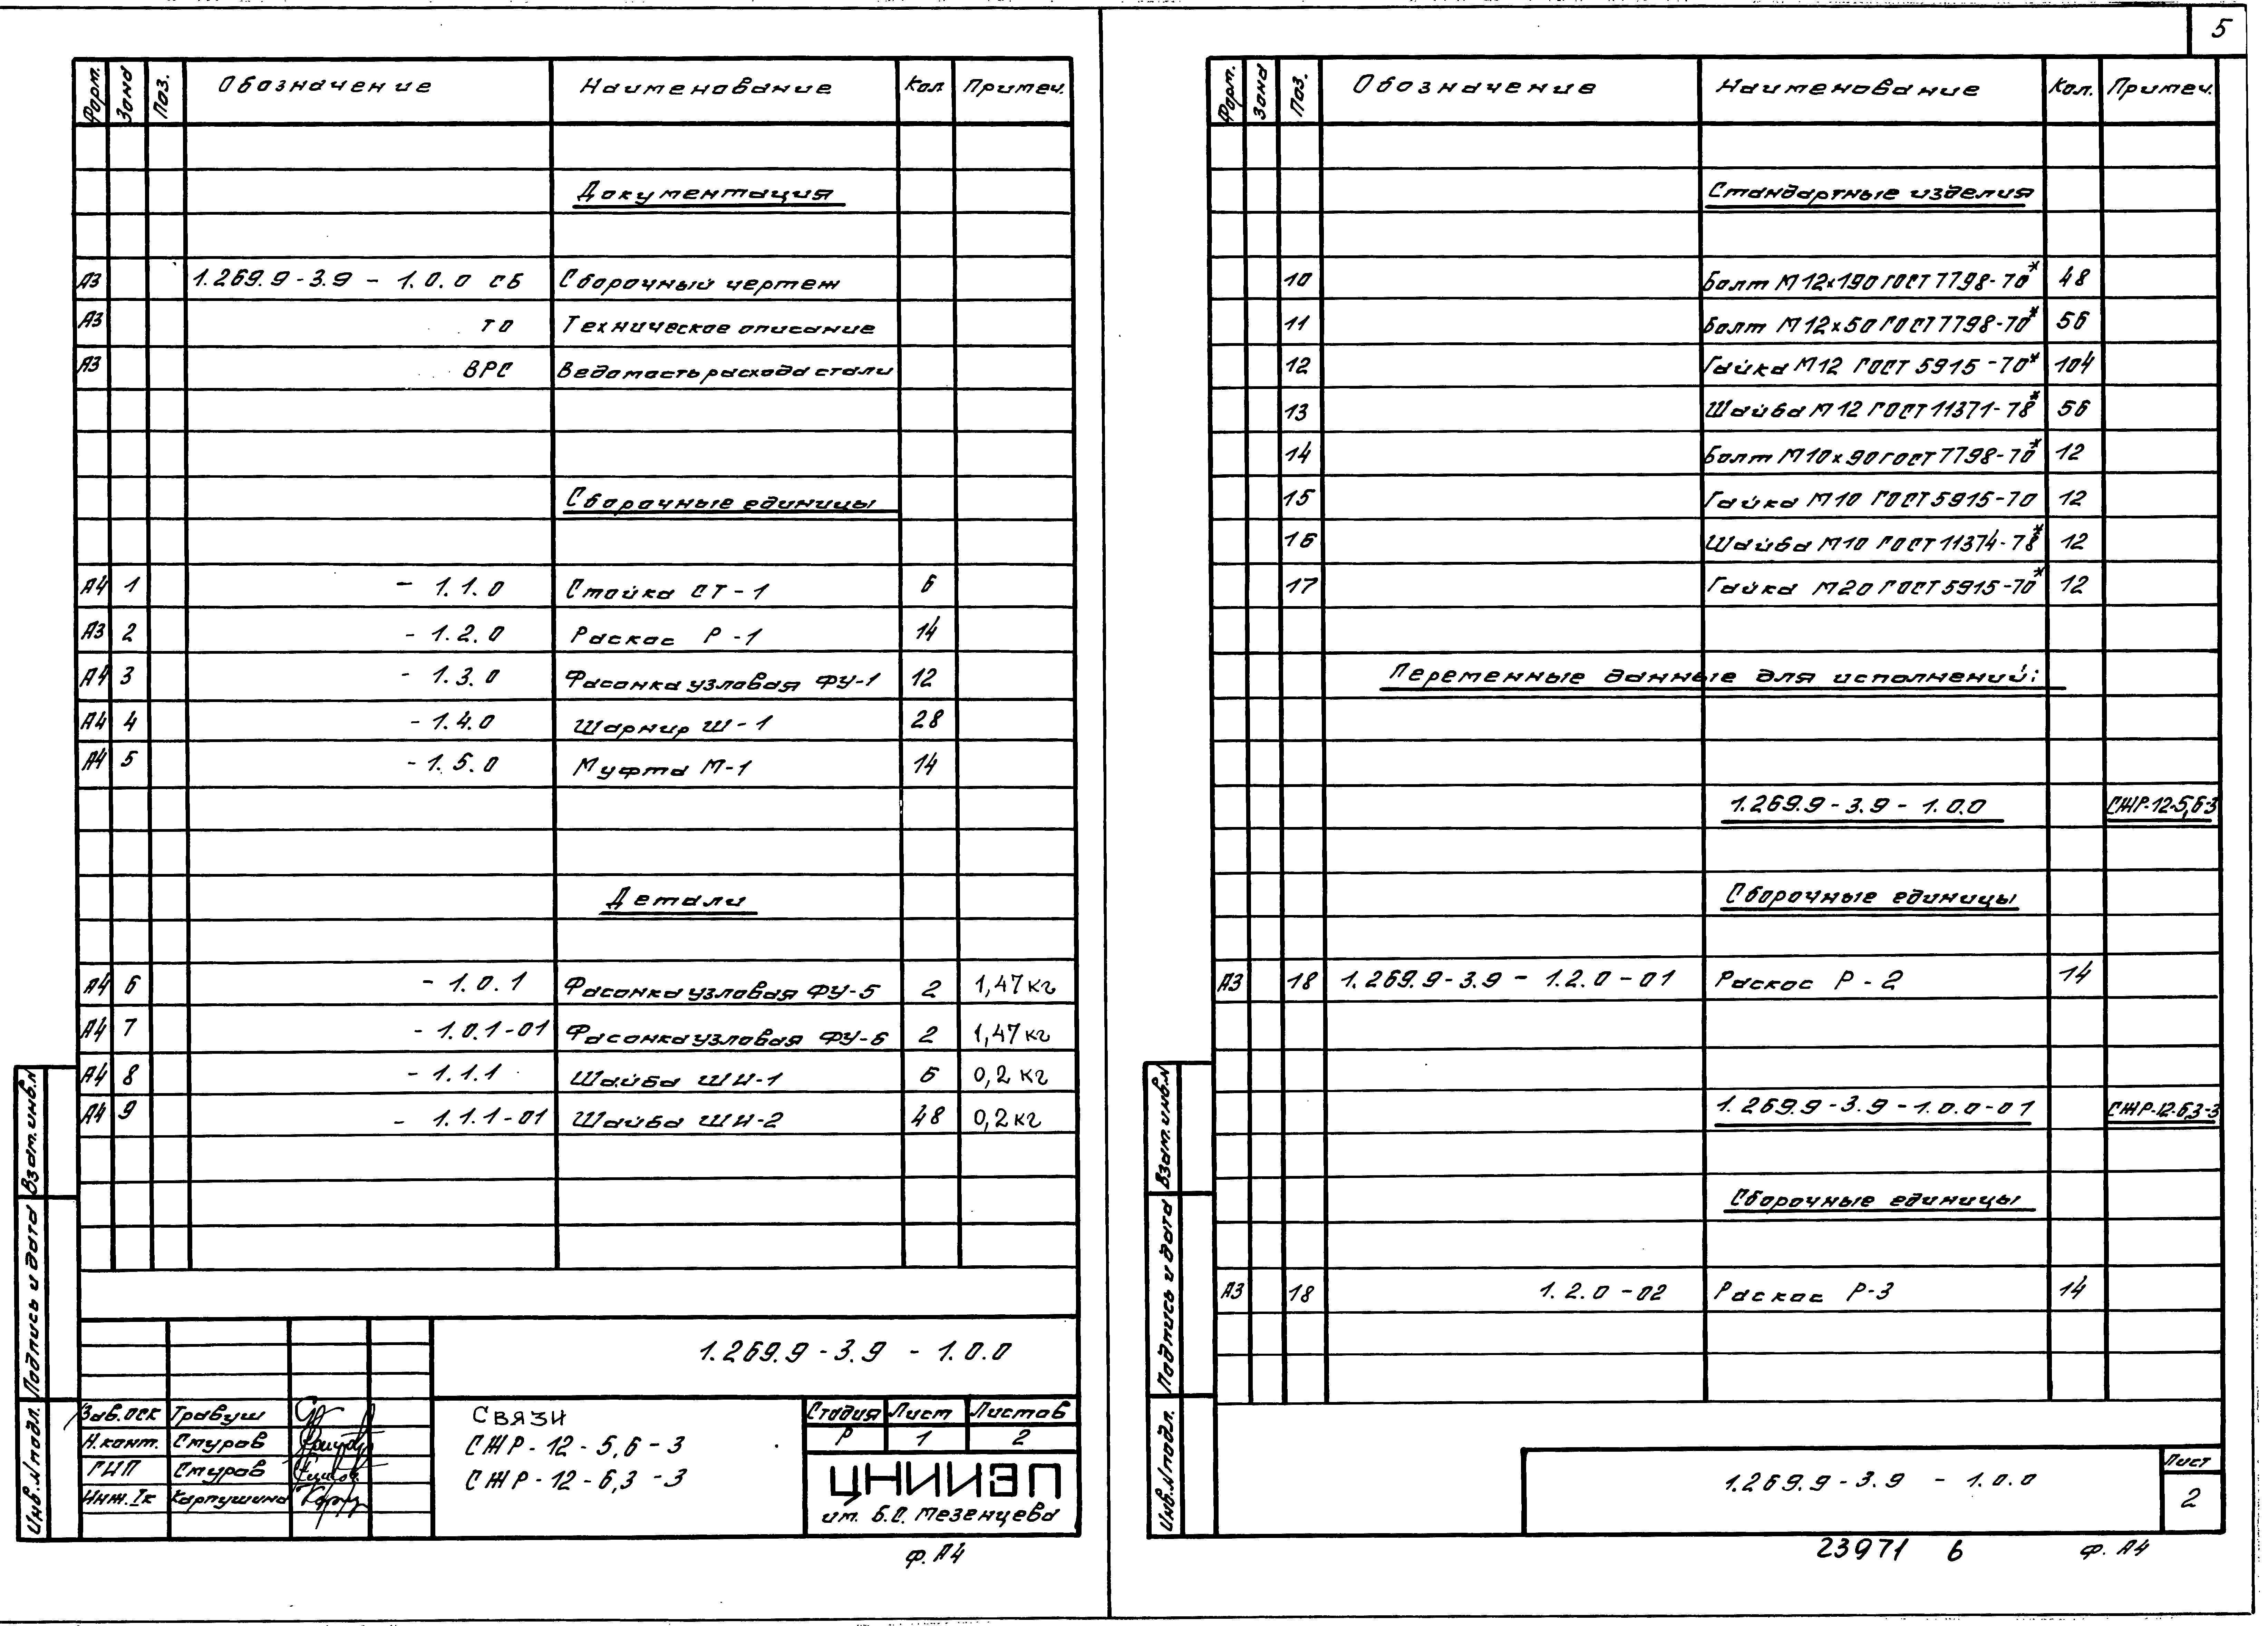 5
Форм. Зона Поз. Обозначение Наименование Кол. Примеч.
Документация
А3 1.269.9-3.9 - 1.0.0 СБ Сборочный чертеж
А3 ТО Техническое описание
А3 ВРС Ведомость расхода стали
Сборочные единицы
А4 1 - 1.1.0 Стойка СТ-1 6
А3 2 - 1.2.0 Раскос Р-1 14
А4 3 - 1.3.0 Фасонка узловая ФУ-1 12
А4 4 - 1.4.0 Шарнир Ш-1 28
А4 5 - 1.5.0 Муфта М-1 14
Детали
А4 6 - 1.0.1 Фасонка узловая ФУ-5 2 1,47 кг
А4 7 - 1.0.1-01 Фасонка узловая ФУ-6 2 1,47 кг
А4 8 - 1.1.1 Шайба ШН-1 6 0,2 кг
А4 9 - 1.1.1-01 Шайба ШН-2 48 0,2 кг
Взам. инв. N
Подпись и дата
Инв. N подл.
1.269.9-3.9 - 1.0.0
Зав. ОСК Травуш
Н.конт. Стуров
ГИП Стуров
Инж. Iк Карпушина
СВЯЗИ
СЖР-12-5,6-3
СЖР-12-6,3-3
Стадия Лист Листов
Р 1 2
ЦНИИЭП
им. Б.С. Мезенцева
ф. А4
Форм. Зона Поз. Обозначение Наименование Кол. Примеч.
Стандартные изделия
10 Болт М12х190 ГОСТ 7798-70* 48
11 Болт М12х50 ГОСТ 7798-70* 56
12 Гайка М12 ГОСТ 5915-70* 104
13 Шайба М12 ГОСТ 11371-78* 56
14 Болт М10х90 ГОСТ 7798-70* 12
15 Гайка М10 ГОСТ 5915-70 12
16 Шайба М10 ГОСТ 11374-78* 12
17 Гайка М20 ГОСТ 5915-70* 12
Переменные данные для исполнений:
1.269.9-3.9-1.0.0 СЖР-12-5,6-3
Сборочные единицы
А3 18 1.269.9-3.9 - 1.2.0-01 Раскос Р-2 14
1.269.9-3.9-1.0.0-01 СЖР-12-6,3-3
Сборочные единицы
А3 18 1.2.0-02 Раскос Р-3 14
Взам. инв. N
Подпись и дата
Инв. N подл.
1.269.9-3.9 - 1.0.0
Лист
2
23971 6 ф. А4